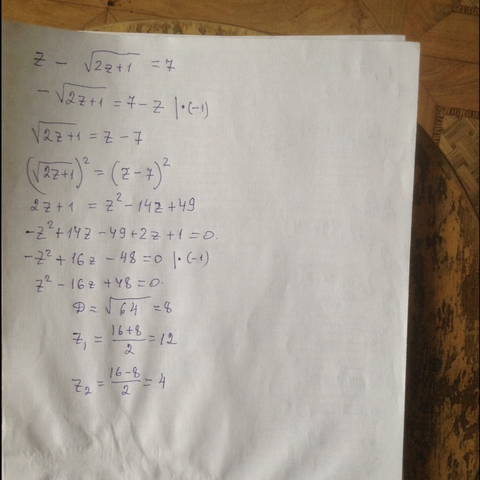 z - √(2z+1) = 7
- √(2z+1) = 7 - z |·(-1)
√(2z+1) = z - 7
(√(2z+1))² = (z - 7)²
2z + 1 = z² - 14z + 49
-z² + 14z - 49 + 2z + 1 = 0.
-z² + 16z - 48 = 0 |·(-1)
z² - 16z + 48 = 0.
D = √64 = 8
z₁ = (16+8)/2 = 12
z₂ = (16-8)/2 = 4